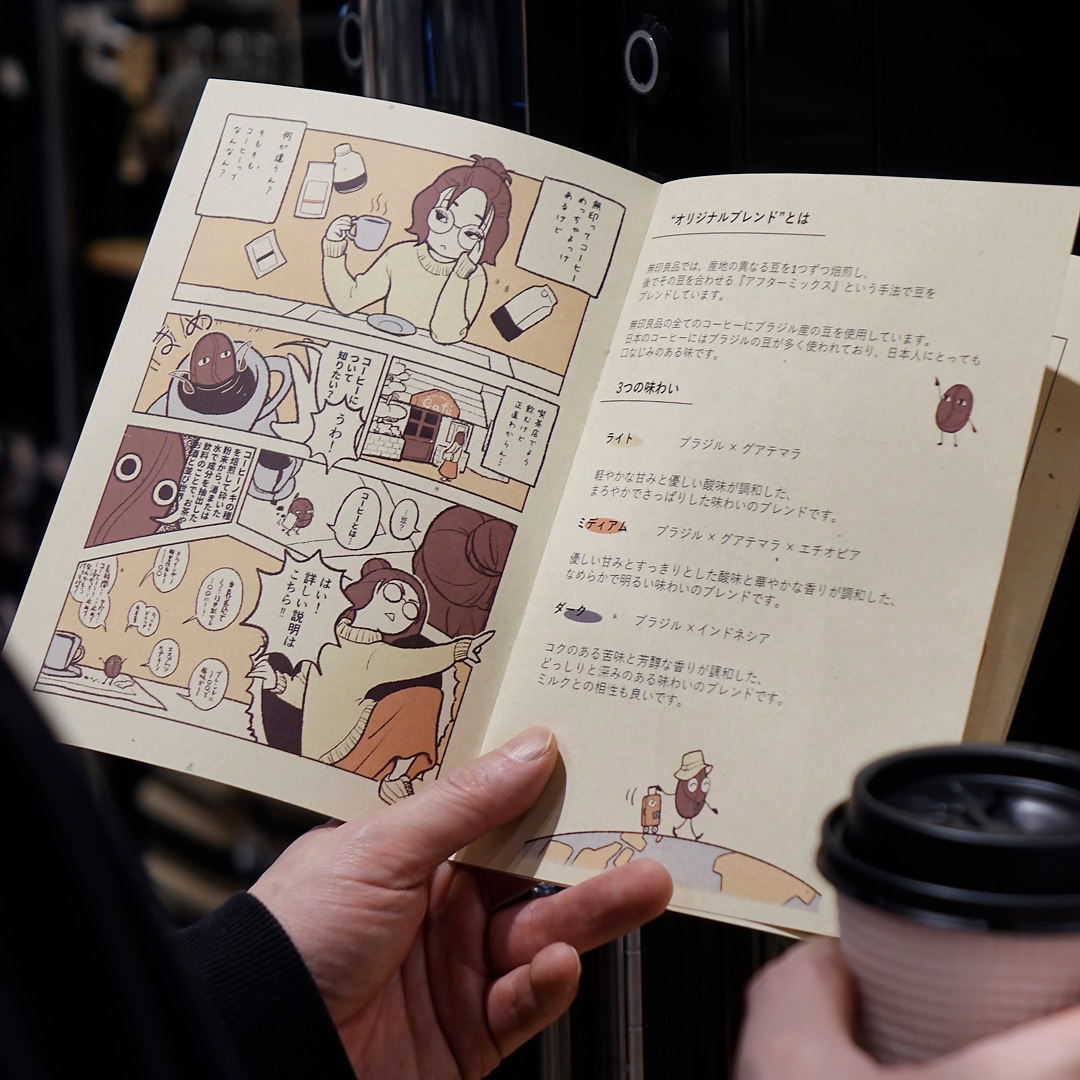 無印ってコーヒー
めっちゃよっけ
あるけど
何が違うん?
そもそも
コーヒーって
なんなん?
コーヒーに
ついて
知りたい?
うわ!
喫茶店でよう
飲むけど
正直わからん…
コーヒーノキの種
を焙煎して砕いた
粉末から、湯または
水で成分を抽出した
飲料のことで、お茶や
お酒と並び世界
コーヒーとは…
…豆?
はい!
詳しい説明は
こちら!!
“オリジナルブレンド”とは
無印良品では、産地の異なる豆を1つずつ焙煎し、
後でその豆を合わせる『アフターミックス』という手法で豆を
ブレンドしています。
無印良品の全てのコーヒーにブラジル産の豆を使用しています。
日本のコーヒーにはブラジルの豆が多く使われており、日本人にとっても
口なじみのある味です。
3つの味わい
ライト ブラジル×グアテマラ
軽やかな甘みと優しい酸味が調和した、
まろやかでさっぱりした味わいのブレンドです。
ミディアム ブラジル×グアテマラ×エチオピア
優しい甘みとすっきりとした酸味と華やかな香りが調和した、
なめらかで明るい味わいのブレンドです。
ダーク ブラジル×インドネシア
コクのある苦味と芳醇な香りが調和した、
どっしりと深みのある味わいのブレンドです。
ミルクとの相性も良いです。